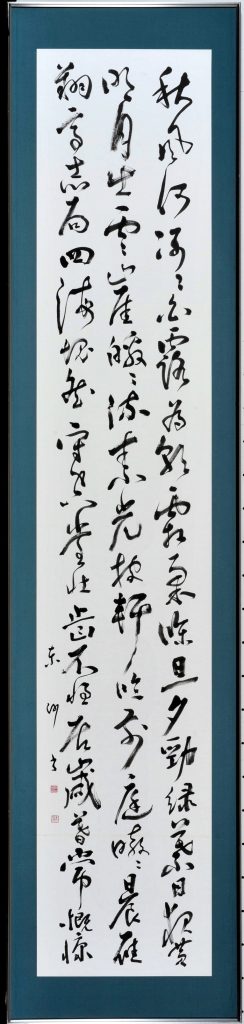 秋風何冽々白露為朝霜柔條旦夕勁綠葉日夜黃
明月出雲崖皦々流素光披軒臨前庭嗷々晨雁
翔高志局四海塊然守空堂壯齒不恆居歲暮常慨慷
東